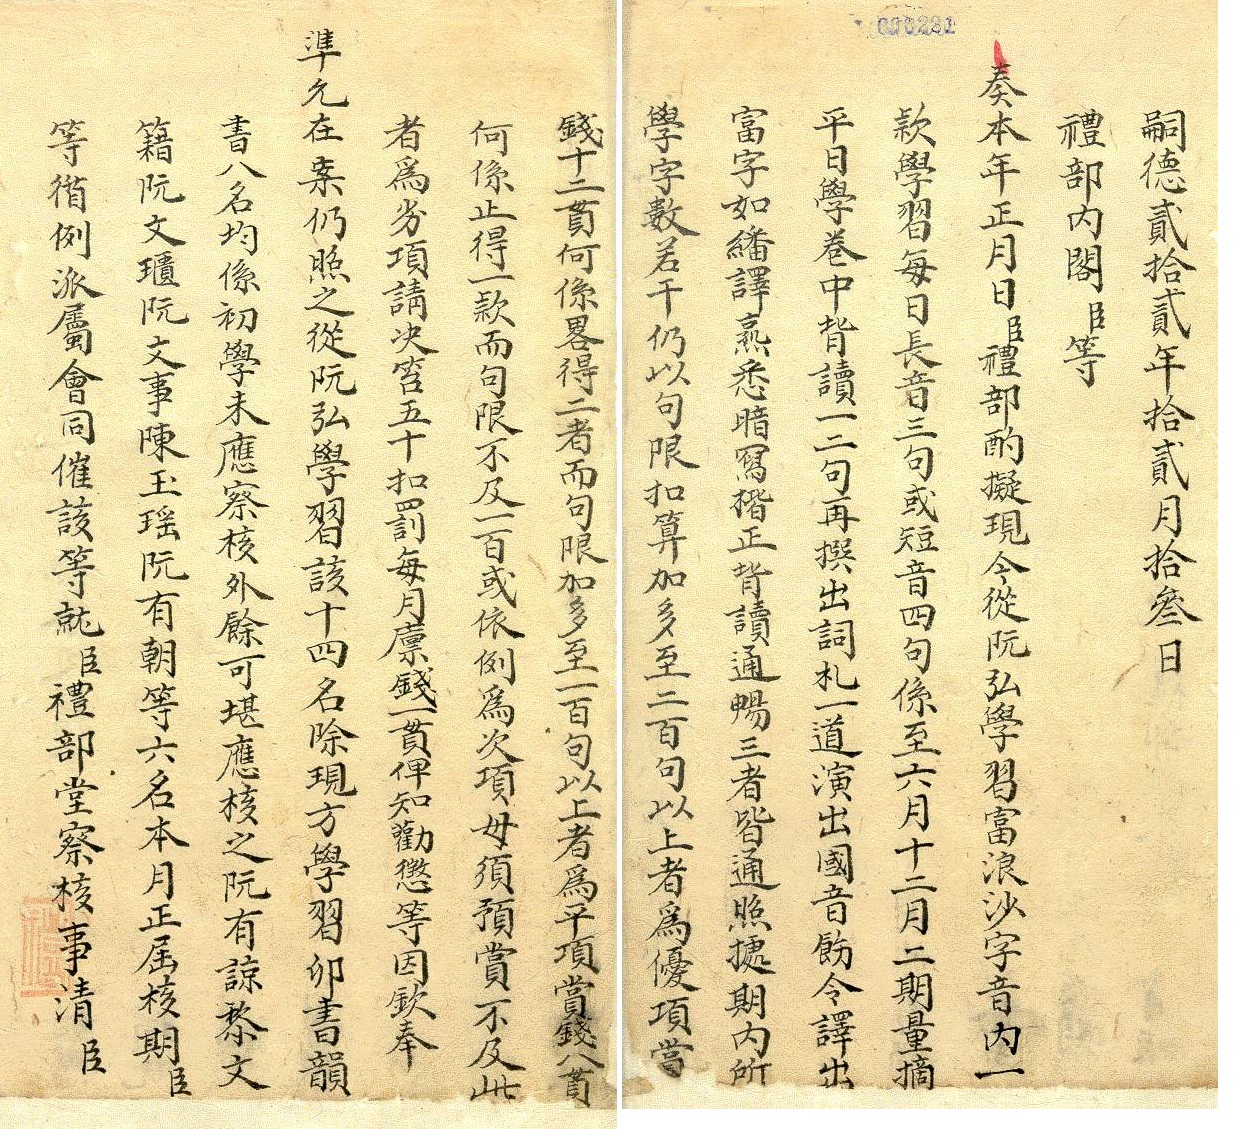 000281
嗣德貳拾貳年拾貳月拾叁日
禮部內閣臣等
奏本年正月日臣禮部酌擬現今從阮弘學習富浪沙字音內一
款學習每日長音三句或短音四句係至六月十二月二期量摘
平日學卷中背讀一二句再撰出詞札一道演出國音飭令譯出
富字如繙譯熹悉暗寫楷正背讀通暢三者皆通照據期內所
學字數若干仍以句限扣算加多至二百句以上者爲優項賞
錢十二貫何係畧得二者而句限加多至一百句以上者爲平項賞錢八貫
何係止得一款而句限不及一百或依例爲次項毋須預賞不及此
者爲劣項請决笞五十扣罰每月廪錢一貫俾知勸懲等因欽奉
準允在案仍照之從阮弘學習該十四名除現方學習卯書韻
書八名均係初學未應察核外餘可堪應核之阮有諒黎文
籍阮文瓓阮文事陳玉瑶阮有朝等六名本月正屆核期臣
等循例派屬會同催該等就臣禮部堂察核事清臣